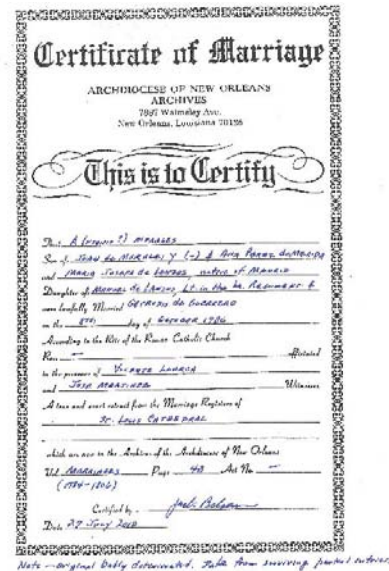 Certificate of Marriage
ARCHDIOCESE OF NEW ORLEANS
ARCHIVES
7887 Walmsley Ave.
New Orleans, Louisiana 70125
This is to Certify
That A (ntonio?) MORALES
Son of JUAN de MORALES Y (-) & Ana PEREZ de MERIDA
and MARIA JOSEFA de, native of MADRID
Daughter of MANUEL de, Lt. in the La. REGIMENT &
were lawfully Married GERTRUDIS de GUERRERO
on the day of OCTOBER
According to the Rite of the Roman Catholic Church
Rev. — officiated
in the presence of VICENTE
and JOSE MARTINEZ Witnesses
A true and exact extract from the Marriage Registers of
ST. LOUIS CATHEDRAL
which are now in the Archives of the Archdiocese of New Orleans
Vol. MARRIAGES Page 40 Act No. —
(1784-1806)
Certified by
Date 27 July
Note — original badly deteriorated. from surviving partial entries.